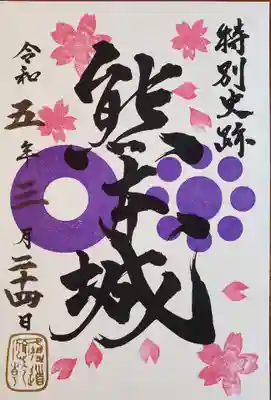 特別史跡
熊本城
令和五年三月二十四日